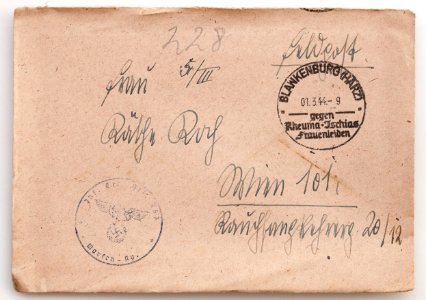 228
Feldpost.
Frau
5/III
Käthe Koch
BLANKENBURG (HARZ)
01.3.44.-9
gegen
Rheuma-Ischias
Frauenleiden
Wien 101.
Rauchfangkehrerg. 20/12